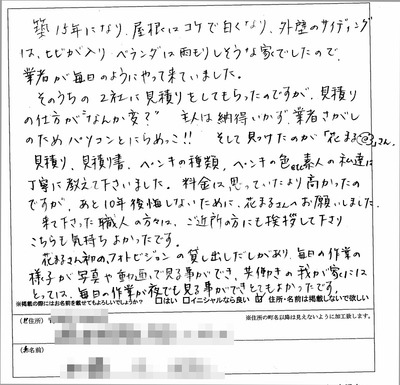 築15年になり、屋根はコケで白くなり、外壁のサイディング
は、ヒビが入り ベランダは雨もりしそうな家でしたので、
業者が毎日のようにやって来ていました。
そのうちの2社に見積りをしてもらったのですが、見積り
の仕方が"なんか変?" 主人は納得いかず、業者さがし
のためパソコンとにらめっこ!! そして見つけたのが「花まる@」さん。
見積り、見積り書、ペンキの種類、ペンキの色etc素人の私達に
丁寧に教えて下さいました。料金は思っていたより高かったの
ですが、あと10年後悔しないために、花まるさんへお願いしました。
来て下さった職人の方々は、ご近所の方にも挨拶して下さり
こちらも気持ちよかったです。
花まるさん初のフォトビジョンの貸し出しだしがあり、毎日の作業の
様子が写真や動画で見る事ができ、共働きの我が家には
とっては、毎日の作業が夜でも見る事ができとてもよかったです。
※掲載の際にはお名前を載せてもよろしいでしょうか? □はい □イニシャルなら良い ☑住所・名前は掲載しないで欲しい
(ご住所) ※住所の町名以降は見えないように加工致します。
(お名前)